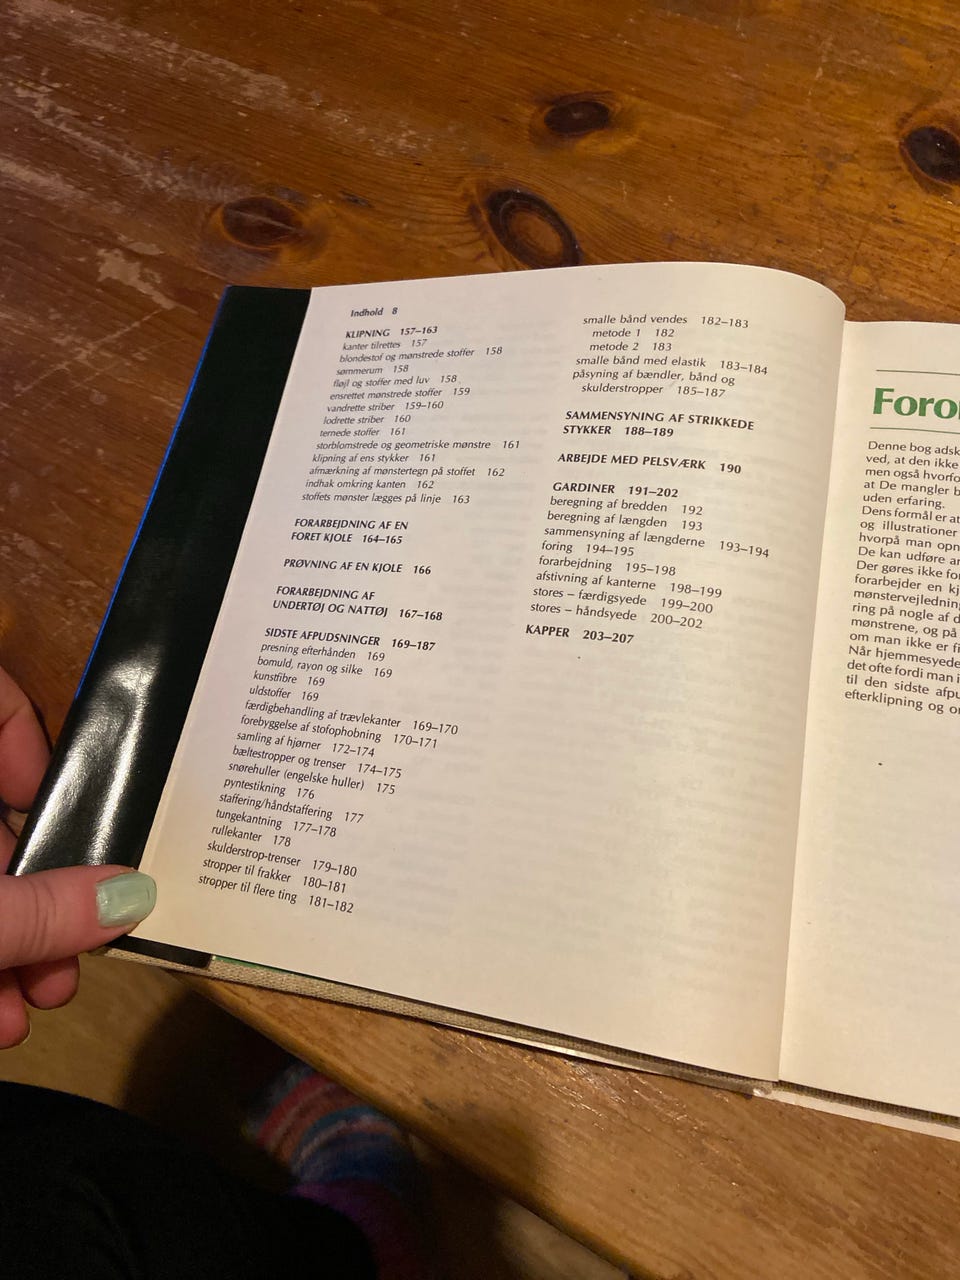 Indhold 8
KLIPNING 157–163
kanter tilrettes 157
blondestof og mønstrede stoffer 158
sømmerum 158
fløjl og stoffer med luv 158
ensrettet mønstrede stoffer 159
vandrette striber 159–160
lodrette striber 160
ternede stoffer 161
storblomstrede og geometriske mønstre 161
klipning af ens stykker 161
afmærkning af mønstertegn på stoffet 162
indhak omkring kanten 162
stoffets mønster lægges på linje 163
FORARBEJDNING AF EN
FORET KJOLE 164–165
PRØVNING AF EN KJOLE 166
FORARBEJDNING AF
UNDERTØJ OG NATTØJ 167–168
SIDSTE AFPUDSNINGER 169–187
presning efterhånden 169
bomuld, rayon og silke 169
kunstfibre 169
uldstoffer 169
færdigbehandling af trævlekanter 169–170
forebyggelse af stofophobning 170–171
samling af hjørner 172–174
bæltestropper og trenser 174–175
snørehuller (engelske huller) 175
pyntestikning 176
staffering/håndstaffering 177
tungekantning 177–178
rullekanter 178
skulderstrop-trenser 179–180
stropper til frakker 180–181
stropper til flere ting 181–182
smalle bånd vendes 182–183
metode 1 182
metode 2 183
smalle bånd med elastik 183–184
påsyning af bændler, bånd og
skulderstropper 185–187
SAMMENSYNING AF STRIKKEDE
STYKKER 188–189
ARBEJDE MED PELSVÆRK 190
GARDINER 191–202
beregning af bredden 192
beregning af længden 193
sammensyning af længderne 193–194
foring 194–195
forarbejdning 195–198
afstivning af kanterne 198–199
stores – færdigsyede 199–200
stores – håndsyede 200–202
KAPPER 203–207
Denne bog
ved, at den ikke
men også
at De mangler
uden erfaring.
Dens formål er at
og illustrationer
hvorpå man
De kan udføre
Der gøres ikke
forarbejder en
ring på nogle af
mønstrene, og på
om man ikke er
Når hjemmesyede
det ofte fordi man
til den sidste
efterklipning og